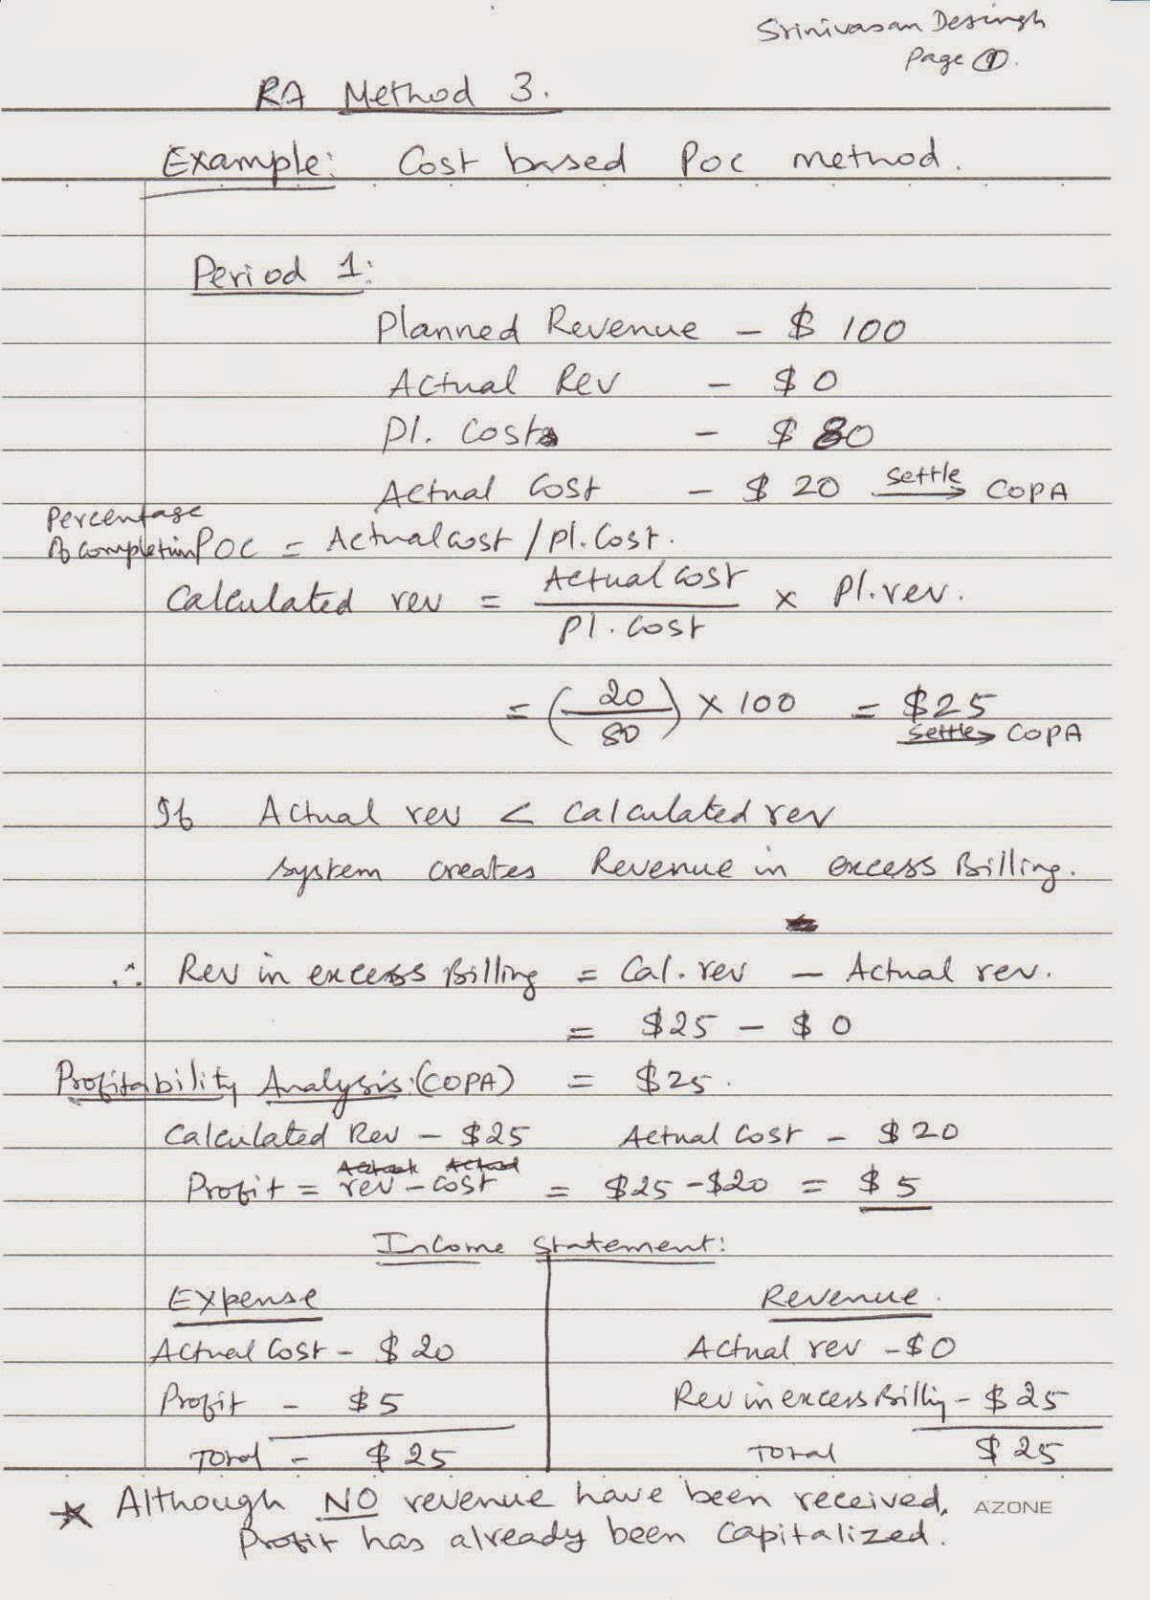 Srinivasan Desingh
Page ①.
RA Method 3.
Example: Cost based POC method.
Period 1:
Planned Revenue - $ 100
Actual Rev - $ 0
Pl. Costs - $ 80
Actual Cost - $ 20 settle → COPA
Percentage
Of completion POC = Actual cost / Pl. Cost.
Calculated rev = Actual cost / Pl. Cost × Pl. rev.
= (20/80) × 100 = $25
settle → COPA
If Actual rev < Calculated rev
system creates Revenue in excess Billing.
∴ Rev in excess Billing = Cal. rev - Actual rev.
= $25 - $ 0
Profitability Analysis: (COPA) = $25.
Calculated Rev - $25 Actual Cost - $20
Profit = rev - cost = $25 - $20 = $5
Income Statement:
Expense Revenue.
Actual Cost - $ 20 Actual rev - $0
Profit - $5 Rev in excess Billig - $25
Total - $25 Total $25
* Although NO revenue have been received, AZONE
Profit has already been capitalized.